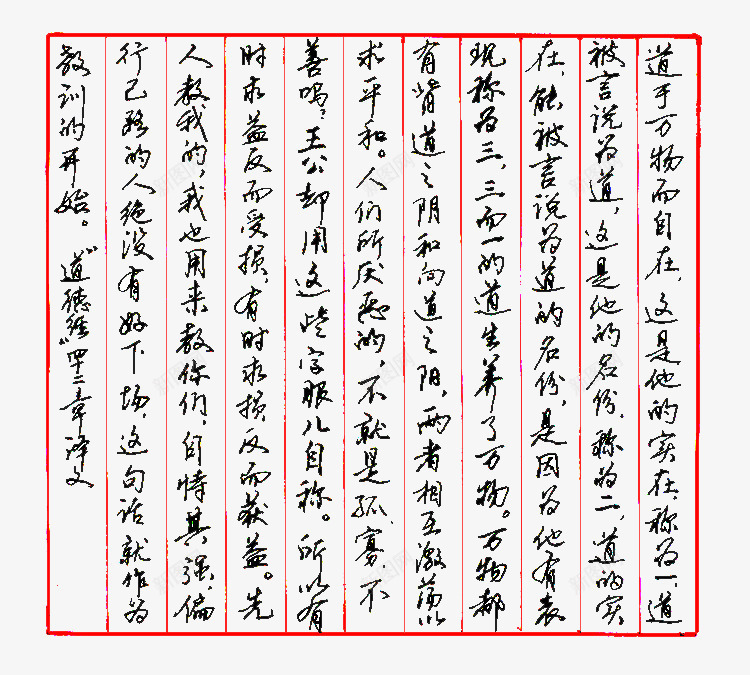 道于万物而自在，这是他的实在，称为一，道
被言说为道，这是他的名份，称为二，道的实
在，能被言说为道的名份，是因为他有表
现称为三，三而一的道生养了万物。万物都
有背道之阴和向道之阳，两者相互激荡以
求平和。人们所厌恶的，不就是孤、寡、不
善吗，王公却用这些字眼儿自称。所以有
时求益反而受损，有时求损反而获益。先
人教我的，我也用来教你们，自恃其强，偏
行己路的人绝没有好下场，这句话就作为
教训的开始。“道德经”四十二章译文